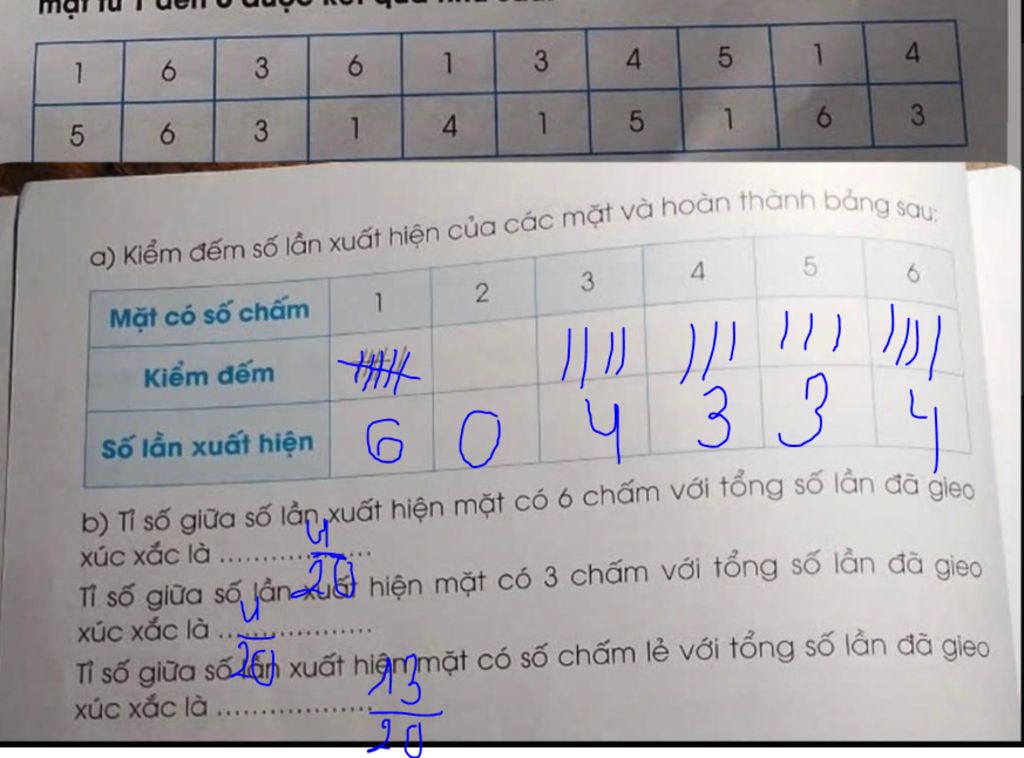 mặt từ 1 đến 6 được kết quả như sau:
1 6 3 6 1 3 4 5 1 4
5 6 3 1 4 1 5 1 6 3
a) Kiểm đếm số lần xuất hiện của các mặt và hoàn thành bảng sau:
Mặt có số chấm 1 2 3 4 5 6
Kiểm đếm
Số lần xuất hiện 6 0 4 3 3 4
b) Tỉ số giữa số lần xuất hiện mặt có 6 chấm với tổng số lần đã gieo
xúc xắc là .................. 4/20
Tỉ số giữa số lần xuất hiện mặt có 3 chấm với tổng số lần đã gieo
xúc xắc là .................. 4/20
Tỉ số giữa số lần xuất hiện mặt có số chấm lẻ với tổng số lần đã gieo
xúc xắc là .................. 13/20